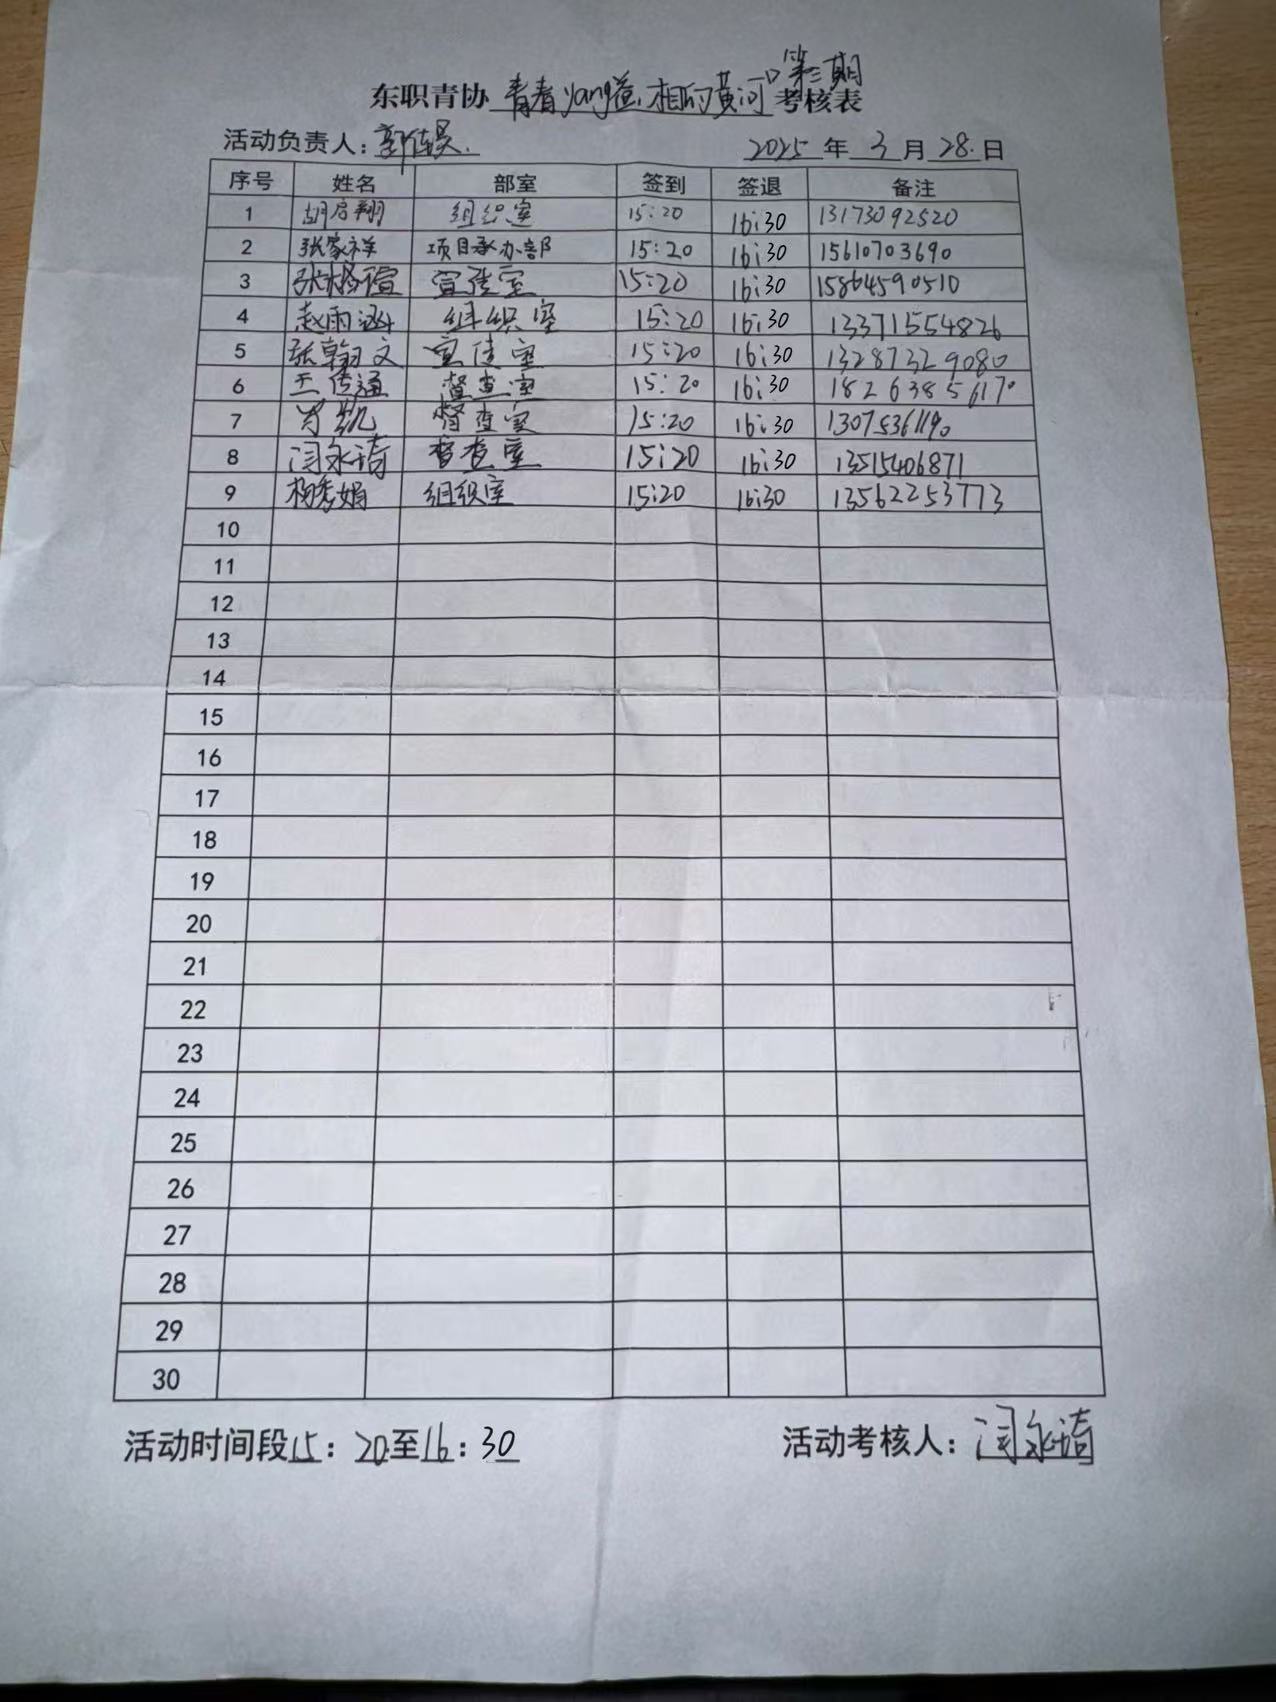 第三期
东职青协 青春yang益,相约黄河口 考核表
活动负责人: 2025 年 3 月 28 日
序号 姓名 部室 签到 签退 备注
1 胡启翔 组织室 15:20 16:30 13173092520
2 张家祥 项目承办部 15:20 16:30 15610703690
3 宣传室 15:20 16:30 15864590510
4 赵雨涵 组织室 15:20 16:30 13371554826
5 张翰文 宣传室 15:20 16:30 13287329080
6 王传通 督查室 15:20 16:30 18263856170
7 肖凯 督查室 15:20 16:30 13075361190
8 闫永琦 督查室 15:20 16:30 13515406871
9 杨秀娟 组织室 15:20 16:30 13562253773
10
11
12
13
14
15
16
17
18
19
20
21
22
23
24
25
26
27
28
29
30
活动时间段15:20至16:30 活动考核人:闫永琦